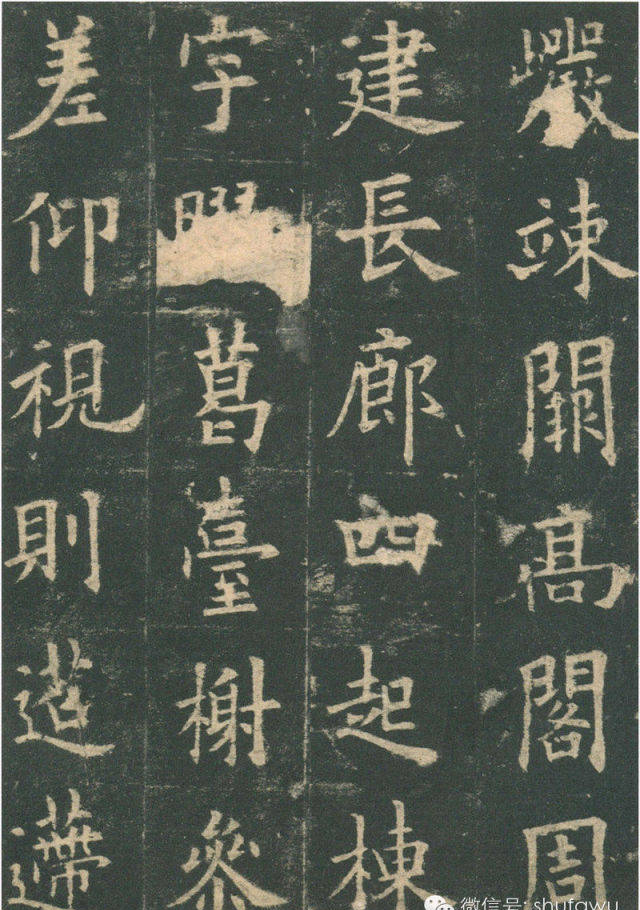 巖竦闕高閣周
建長廊四起棟
宇葛臺榭參
差仰視則迢遰
微信号: shufawu